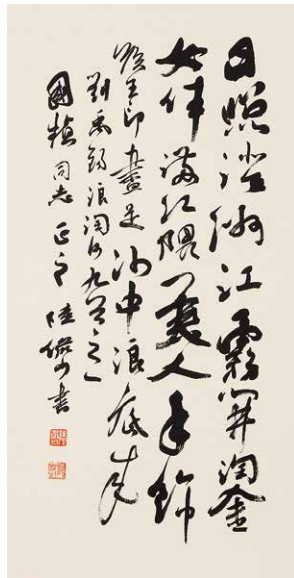 日照澄洲江霧開淘金
女伴滿江隈美人首飾
侯王印盡是沙中浪底來
劉禹錫浪淘沙九首之一
國楨同志正之 陸儼少書